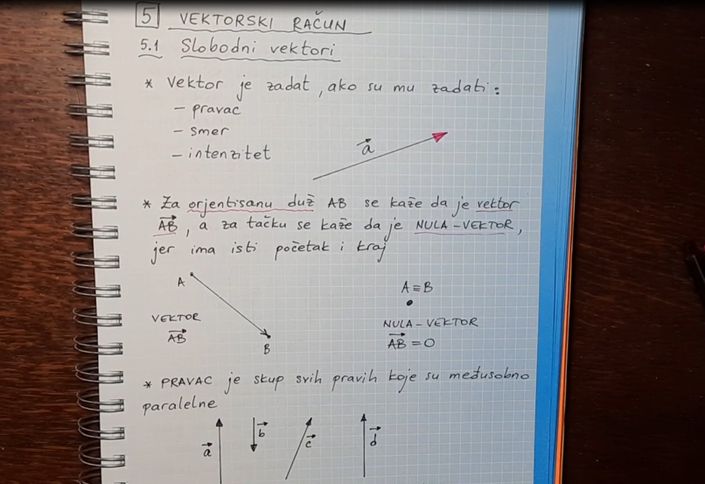 5 VEKTORSKI RAČUN
5.1 Slobodni vektori
* Vektor je zadat, ako su mu zadati:
– pravac
– smer
– intenzitet
a⃗
* Za orjentisanu duž AB se kaže da je vektor
A⃗B⃗, a za tačku se kaže da je NULA-VEKTOR,
jer ima isti početak i kraj
A
B
VEKTOR
A⃗B⃗
A≡B
NULA-VEKTOR
A⃗B⃗ = 0
* PRAVAC je skup svih pravih koje su međusobno
paralelne
a⃗ b⃗ c⃗ d⃗